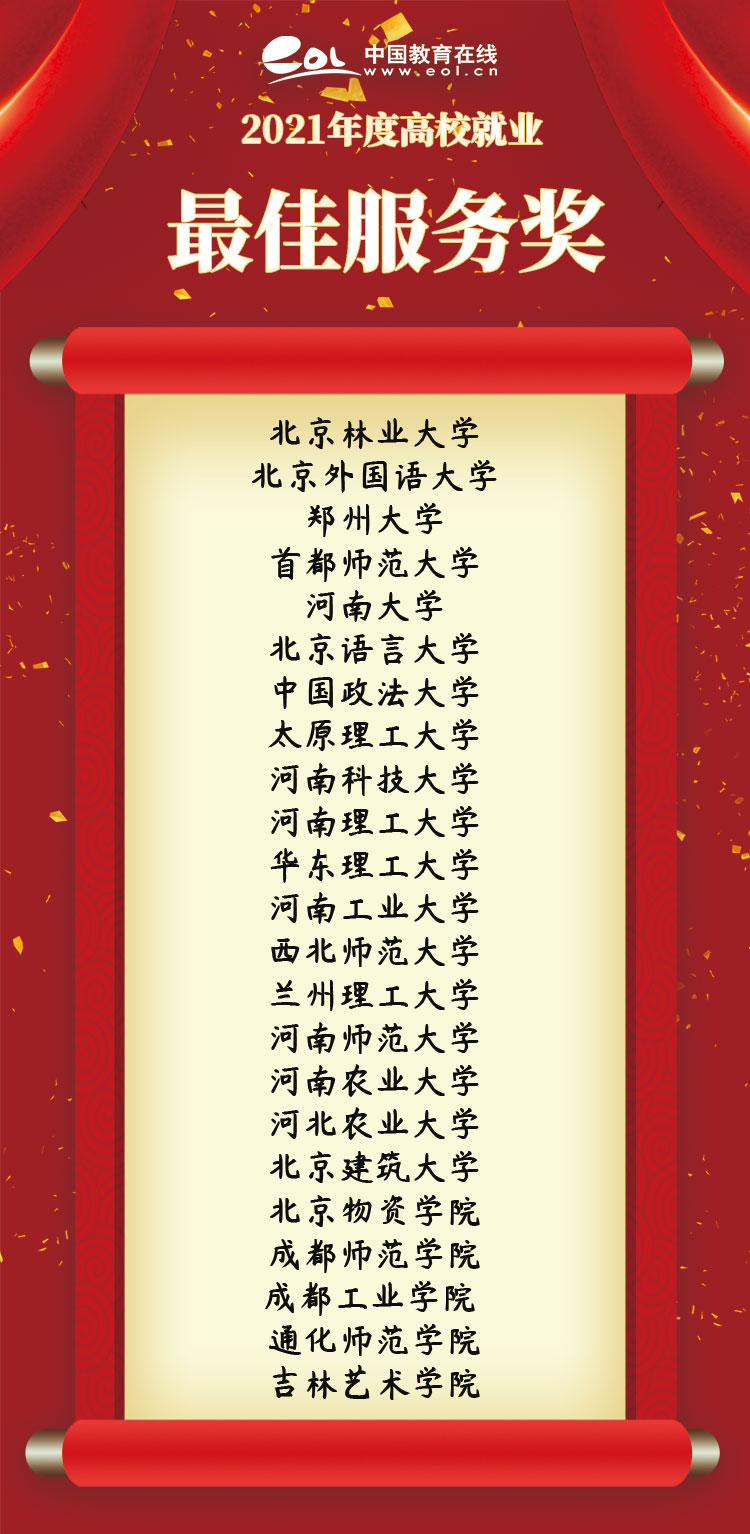 eol 中国教育在线
www.eol.cn
2021年度高校就业
最佳服务奖
北京林业大学
北京外国语大学
郑州大学
首都师范大学
河南大学
北京语言大学
中国政法大学
太原理工大学
河南科技大学
河南理工大学
华东理工大学
河南工业大学
西北师范大学
兰州理工大学
河南师范大学
河南农业大学
河北农业大学
北京建筑大学
北京物资学院
成都师范学院
成都工业学院
通化师范学院
吉林艺术学院